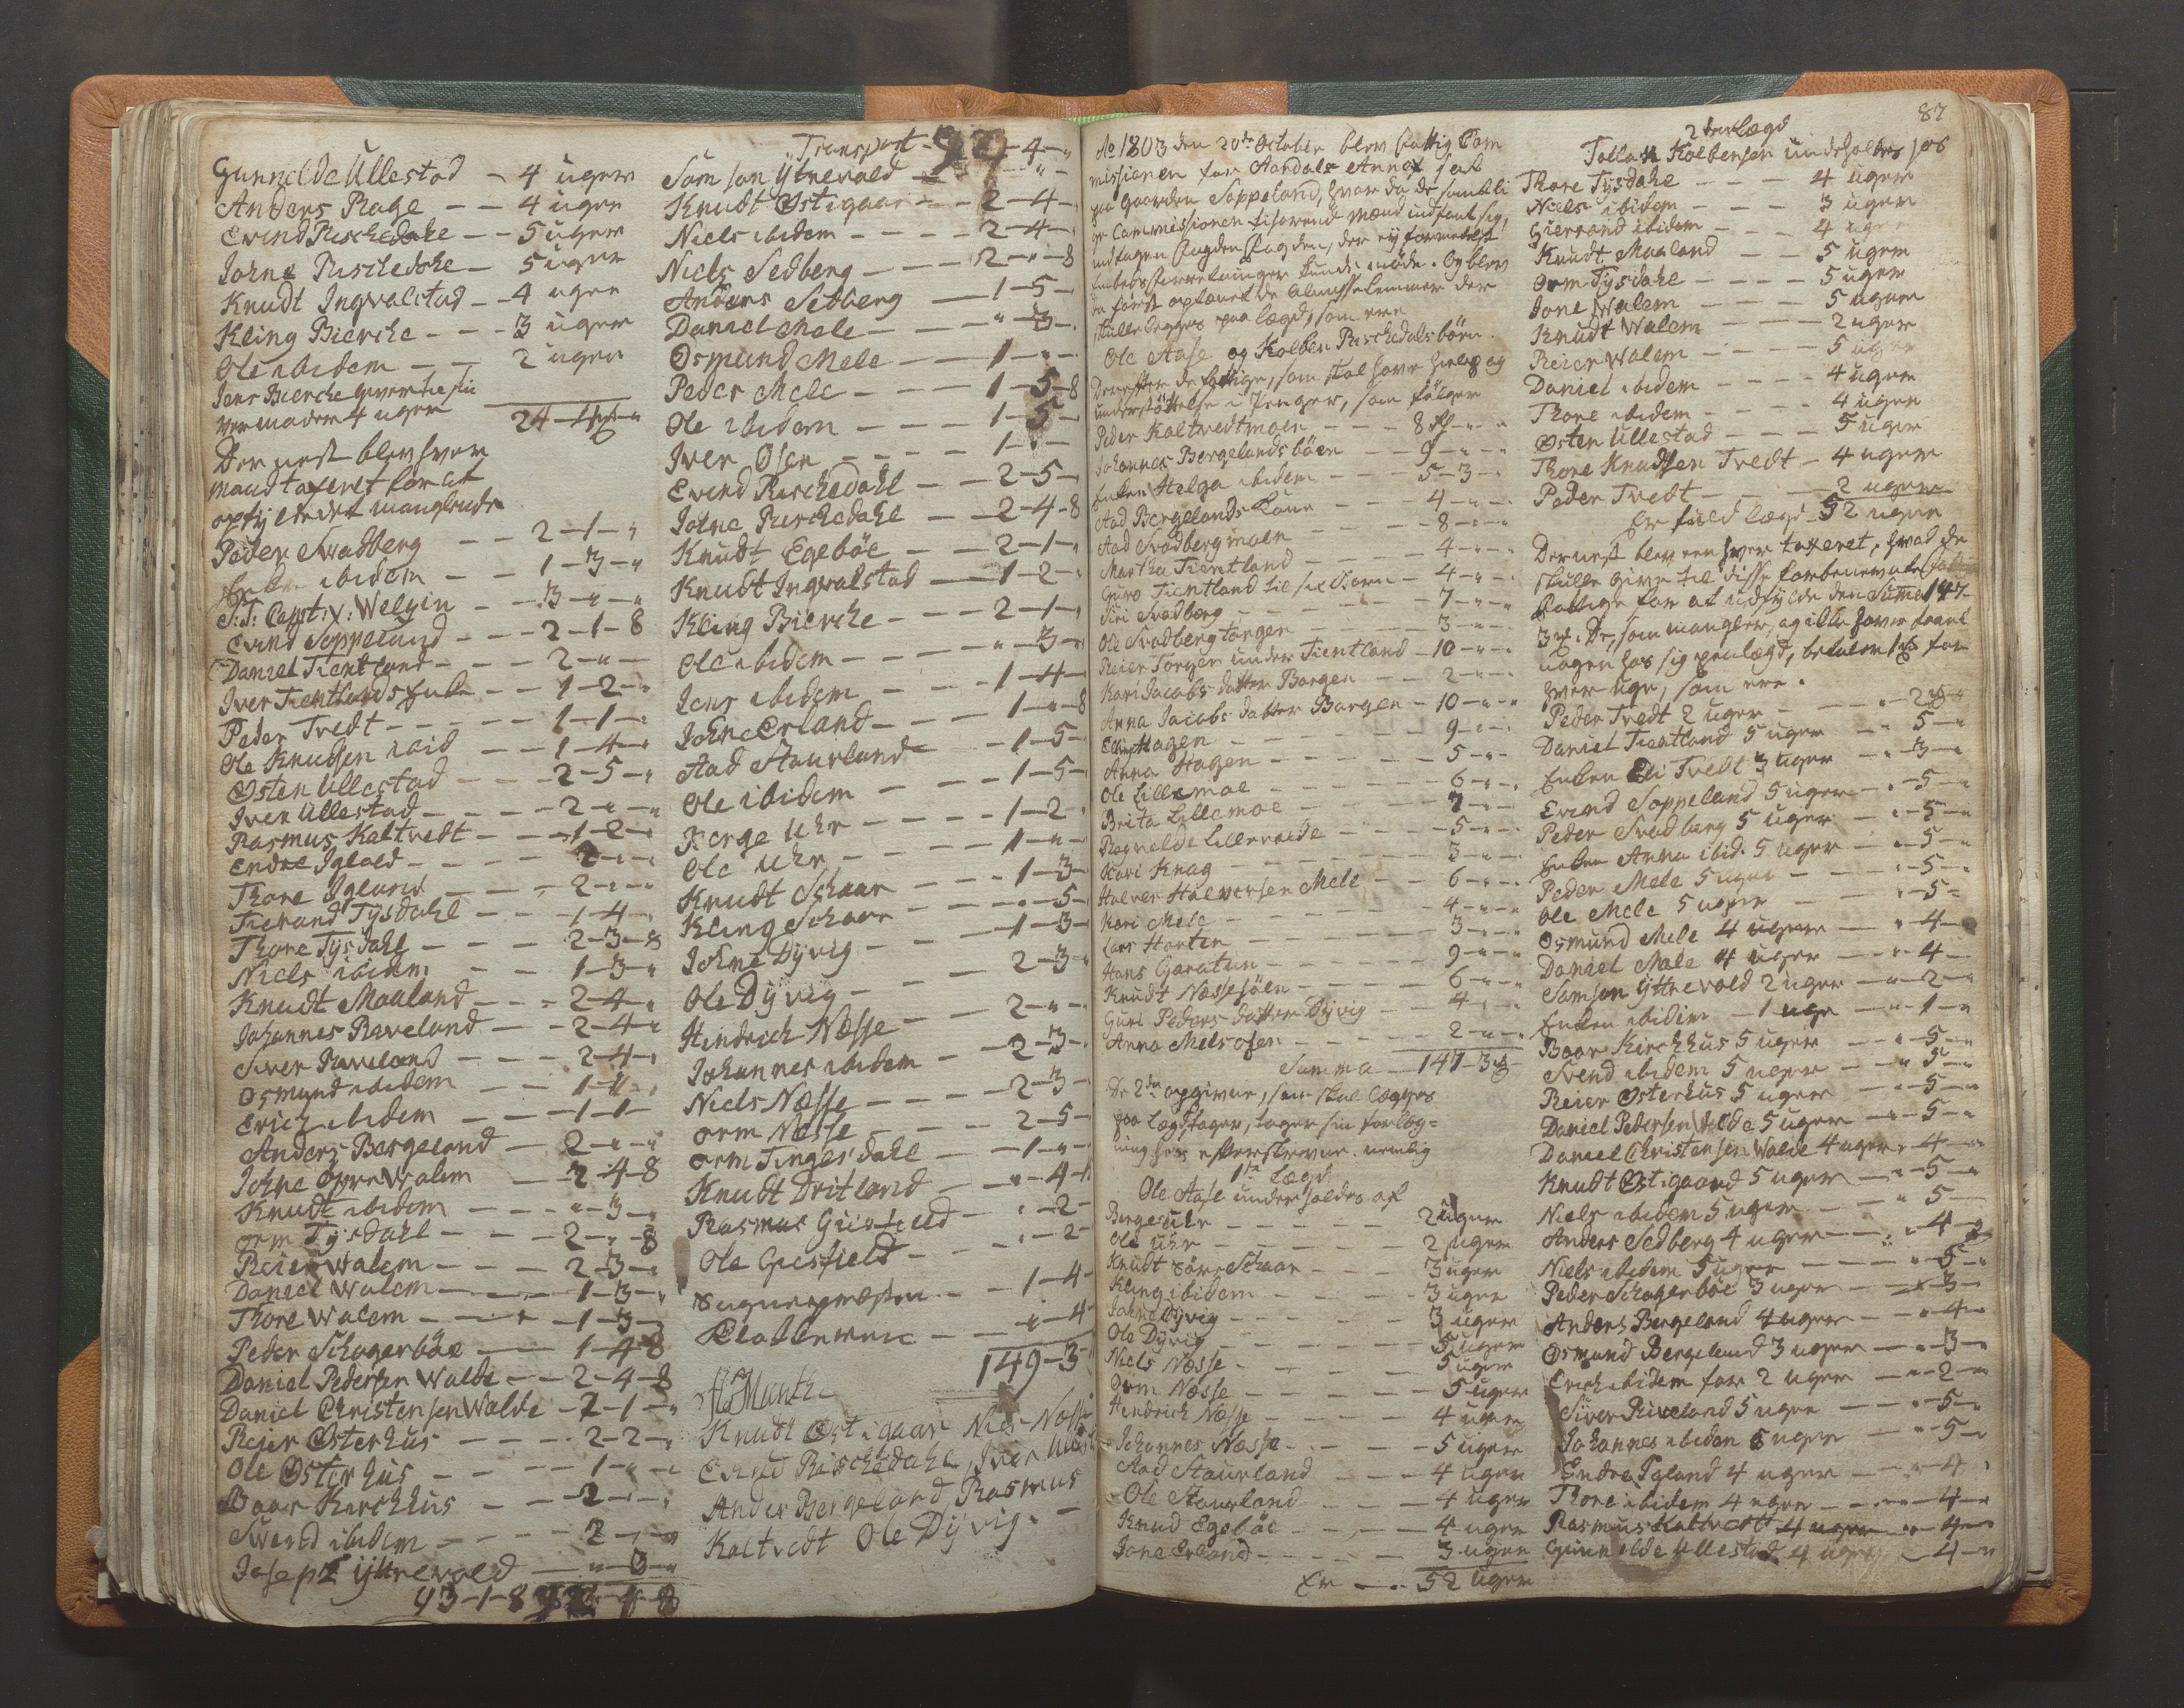 Gunnelde Ullestad – 4 uger
Anders Rage – – 4 uger
Evind Rischedahle – – 5 uger
Johne Rischedahle – 5 uger
Knudt Ingvalstad – – 4 uger
Kling Biercke – – – 3 uger
Ole ibidem – – – 2 uger
Jens Biercke
4 uger 24 – 4
Der nest blev hver
mand taxeret for at
opfylde det manglende
Peder Svadberg – – 2 – 1 – "
Enken ibidem – – 1 – 3 – "
S: T: Capt: v: Welgin – – 3 – " – "
Evind Soppeland – – – 2 – 1 – 8
Daniel Tientland – – – 2 – " –
Iver Tientlands Enke – – 1 – 2 – "
Peder Tvedt – – – – – 1 – 1 – "
Ole Knudsen ibid – – 1 – 4 – "
Østen Ullestad – – – 2 – 5 – "
Iver Ullestad – – – – 2 – " – "
Rasmus Kaltvedt – – – 1 – 2 – "
Endre Igland – – – – 2 – " – "
Thore Igland – – – 2 – " – "
Tierand Tysdahl – – 1 – 4 – "
Thore Tysdahl – – – 2 – 3 – 8
Niels ibidem – – 1 – 3 – "
Knudt Maaland – – – 2 – 4 – "
Johannes Raveland – – 2 – 4 – "
Siver Raveland – – – 2 – 4 – "
Osmund ibidem – – 1 – 1 – "
Erich ibidem – – – 1 – 1 –
Anders Bergeland – – 2 – " – "
Johne Øvre Walem – – 2 – 4 – 8
Knudt ibidem – – – " – 3 – "
Orm Tysdahl – – – 2 – " – 8
Reier Walem – – – – 2 – 3 – "
Daniel Walem – – – – 1 – 3 – "
Thore Walem – – – – 1 – 3 – "
Peder Schogerbøe – – 1 – 4 – 8
Daniel Pedersen Walde – – 2 – 4 – 8
Daniel Christensen Walde – 2 – 1 – "
Reier Østerhus – – – – 2 – 2 – "
Ole Østerhus – – – – 1 – " – "
Baar Kirchhus – – – 2 – " – "
Svend ibidem – – – – 2 – " – "
Joseph Yttrevold – – " – 3 – "
93 – 1 – 8
Transport – 4 – "
Samson Yttrevold
Knudt Østigaar – – – 2 – 4 –
Niels ibidem – – – – 2 – 4 –
Niels Sedberg – – – 2 – " – 8
Anders Sedberg – – 1 – 5 –
Daniel Mele – – – " – 3 –
Osmund Mele – – 1 – " –
Peder Mele – – – 1 – 5 – 8
Ole ibidem – – – – 1 – 5 –
Iver Osen – – – – 1 – " –
Evind Rischedahl – – 2 – 5 –
Johne Rischedahl – – 2 – 4 – 8
Knudt Egebøe – – – 2 – 1 – "
Knudt Ingvalstad – – 1 – 2 – "
Kling Biercke – – – 2 – 1 – "
Ole ibidem – – – – " – 3 – "
Jens ibidem – – – 1 – 4 –
Johne Erland – – – 1 – " – 8
Aad Staurland – – 1 – 5 –
Ole ibidem – – – 1 – 5 –
Børge Uhr – – – – 1 – 2 –
Ole Uhr – – – – 1 – " –
Knudt Schaar – – – 1 – 3 –
Kling Schaar – – – " – 5 –
Johne Dyvig – – – 1 – 3 –
Ole Dyvig – – – 2 – 3 –
Hindrich Nesse – – – 2 – " –
Johannes ibidem – – 2 – 3 –
Niels Nesse – – – – 2 – 3 –
Orm Nesse – – – – 2 – 5 –
Orm Tingesdahl – – 1 – " –
Knudt Dritland – – " – 4 –
Rasmus Giesfield – " – 2 –
Ole Giesfield – – – " – 2 –
Sognepræsten – – – 1 – 4 –
Klokkeren – – – " – 4 –
149 – 3
Munth
Knudt Østigaar Niels Nesse
Evind Rischedahl, Iver Ullestad
Anders Bergeland, Rasmus
Kaltvedt Ole Dyvig. –
87
Ao 1803 den 20de October blev fattig Com
missionen for Aardals Annex sat
paa Gaarden Soppeland, hvor da de samtli
ge Commissionen tilhørende mænd indfant sig,
undtagen fogden, der ej formedelst
Embedsforretninger kunde møde. Og blev
da først opnævnt de almisselemmer der
skulle legges paa lægd, som ere
Ole Aase og Kolben Rischedals børn.
Derefter de fattige, som skal have hielp og
understøttelse i Penger, som følger
Peder Kaltvedtmoen – – – 8 Rd – " – "
Johannes Bergelandsbøen – – 9 – " – "
Enken Helga ibidem – – – 5 – 3 – "
Aad Bergelands Kone – – – 4 – " – "
Aad Svadbergmoen – – – 8 – " – "
Martha Tientland – – – – 4 – " – "
Guro Tientland til sit Barn – 4 – " – "
Siri Svadberg – – – – 7 – " – "
Ole Svadberg torgen – – – 3 – " – "
Reier Torgen under Tientland – 10 – " – "
Kari Jacobs datter Bargen – – 2 – " – "
Anna Jacobs datter Bargen – 10 – " – "
Elling Hagen – – – – 9 – " – "
Anna Hagen – – – – 5 – " – "
Ole Lillemoe – – – – 6 – " – "
Brita Lillemoe – – – – 7 – " – "
Ragnelde Lillevolde – – – 5 – " – "
Kari Knag – – – – 3 – " – "
Halver Halversen Mele – – 6 – " – "
Kari Mele – – – – 4 – " – "
Lars Horten – – – – 3 – " – "
Hans Garatun – – – – 9 – " – "
Knudt Nessesøen – – – – 6 – " – "
Guri Peders datter Dyvig – – 4 – " – "
Anna Melsosen – – – – 2 – " – "
Summa – 147 – 3
De 2de opgivne, som skal legges
paa Lægdstager, tager sin forlæg=
ning hos efterskrevne. nemlig
1ste Lægd
Ole Aase underholdes af
Børge Uhr – – – – 2 uger
Ole Uhr – – – – – 2 uger
Knudt Søre Schaar – – – 3 uger
Kling ibidem – – – – 3 uger
Johne Dyvig – – – – 3 uger
Ole Dyvig – – – – 5 uger
Niels Nesse – – – – 5 uger
Orm Nesse – – – – 5 uger
Hendrich Nesse – – – 4 uger
Johannes Nesse – – – 5 uger
Aad Staurland – – – 4 uger
Ole Staurland – – – 4 uger
Knud Egebøe – – – 4 uger
Jone Erland – – – – 3 uger
Er – – 52 uger
2den lægd
Tollak Kolbensen underholdes hos
Thore Tysdahle – – – 4 uger
Niels ibidem – – – 3 uger
Gierrand ibidem – – – 4 uger
Knudt Maaland – – 5 uger
Orm Tysdahl – – – – 5 uger
Jone Walem – – – – 5 uger
Knudt Walem – – – 2 uger
Reier Walem – – – – 5 uger
Daniel ibidem – – – – 4 uger
Thore ibidem – – – – 4 uger
Østen Ullestad – – – – 5 uger
Thore Knudsen Tvedt – 4 uger
Peder Tvedt – – – 2 uger
Er fuld lægd – 52 uger
Dernest blev een hver taxeret, hvad de
skulle give til disse forbenevnte
fattige for at udfylde den Summe 147
3 . De, som mangler, og ikke haver faaet
nogen hos sig paa lægd, betaler 1 for
hver uge, som ere.
Peder Tvedt 2 uger – – – " – 2 – "
Daniel Tientland 5 uger – – " – 5 – "
Enken Eli Tvedt 3 uger – – " – 3 – "
Evind Soppeland 5 uger – – " – 5 – "
Peder Svadberg 5 uger – – " – 5 – "
Enken Anna ibid. 5 uger – – " – 5 – "
Peder Mele 5 uger – – – " – 5 –
Ole Mele 5 uger – – – " – 5 –
Osmund Mele 4 uger – – " – 4 –
Daniel Mele 4 uger – – " – 4 –
Samson Yttrevold 2 uger – – " – 2 – "
Enken ibidem – 1 uge – – " – 1 – "
Baar Kirchhus 5 uger – – " – 5 – "
Svend ibidem 5 uger – – " – 5 – "
Reier Østerhus 5 uger – – " – 5 – "
Daniel Pedersen Walde 5 uger – " – 5 – "
Daniel Christensen Walde 4 uger – " – 4 – "
Knudt Østigaard 5 uger – – " – 5 – "
Niels ibidem 5 uger – – – " – 5 –
Anders Sedberg 4 uger – – " – 4 – "
Niels ibidem 5 uger – – – " – 5 – "
Peder Schogerbøe 3 uger – – " – 3 –
Anders Bergeland 4 uger – – " – 4 –
Osmund Bergeland 3 uger – – " – 3 –
Erich ibidem for 2 uger – – " – 2 – "
Siver Riveland 5 uger – – " – 5 –
Johannes ibidem 5 uger – – " – 5 –
Endre Igland 4 uger – – – " – 4 –
Thore ibidem 4 uger – – – " – 4 – "
Rasmus Kaltvedt 4 uger – " – 4 –
Gunnelde Ullestad 4 uger – 4 – "